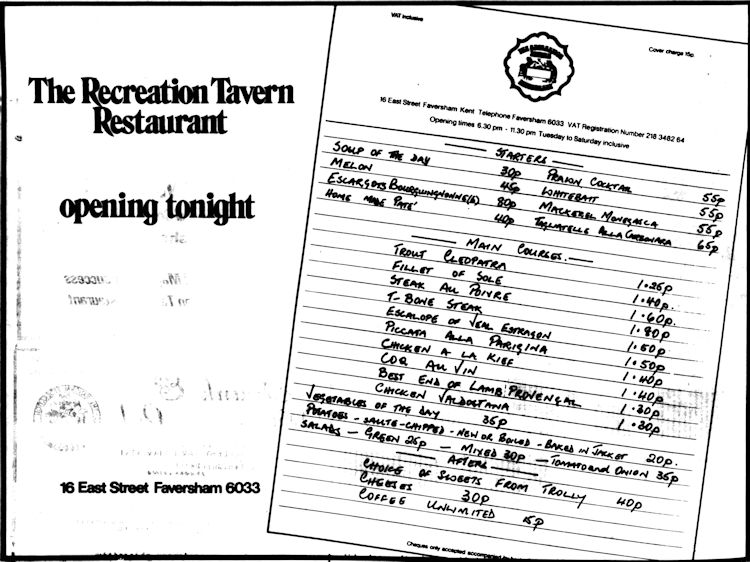 The Recreation Tavern
Restaurant
opening tonight
16 East Street Faversham 6033
VAT inclusive
Cover charge 15p
THE RECREATION
16 East Street Faversham Kent Telephone Faversham 6033 VAT Registration Number 218 3482 64
Opening times 6.30 pm - 11.30 pm Tuesday to Saturday inclusive
STARTERS
SOUP OF THE DAY 30p PRAWN COCKTAIL 55p
MELON 45p WHITEBAIT 55p
ESCARGOTS BOURGUINGNONNE(6) 80p MACKEREL MONEGASCA 55p
HOME MADE PATE' 40p TAGLIATELLE ALLA CARBONARA 65p
MAIN COURSES.
TROUT CLEOPATRA 1.25p
FILLET OF SOLE 1.40p.
STEAK AU POIVRE 1.60p.
T-BONE STEAK 1.80p
ESCALOPE OF VEAL ESTRAGON 1.50p
PICCATA ALLA PARIGINA 1.50p
CHICKEN A LA KIEF 1.40p
COQ AU VIN 1.40p
BEST END OF LAMB PROVENÇAL 1.30p
CHICKEN VALDOSTANA 1.30p
VEGETABLES OF THE DAY 35p
POTATOES - SAUTE - CHIPPED - NEW OR BOILED - BAKED IN JACKET 20p.
SALADS - GREEN 25p - MIXED 30p - TOMATO AND ONION 35p
AFTERS
CHOICE OF SWEETS FROM TROLLY 40p
CHEESES 30p
COFFEE UNLIMITED 15p
Cheques only accepted accompanied